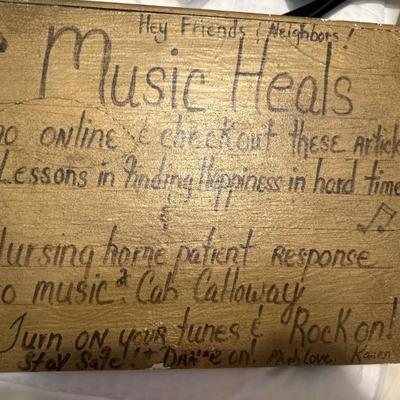 Hey Friends & Neighbors!
Music Heals
Go ONLINE & check out these Article
Lessons in Finding Happiness in hard time
Nursing home patient Response
to music. Cab Calloway
Turn ON your tunes & Rock on!
Stay Safe! + Dance on! Love. Karen